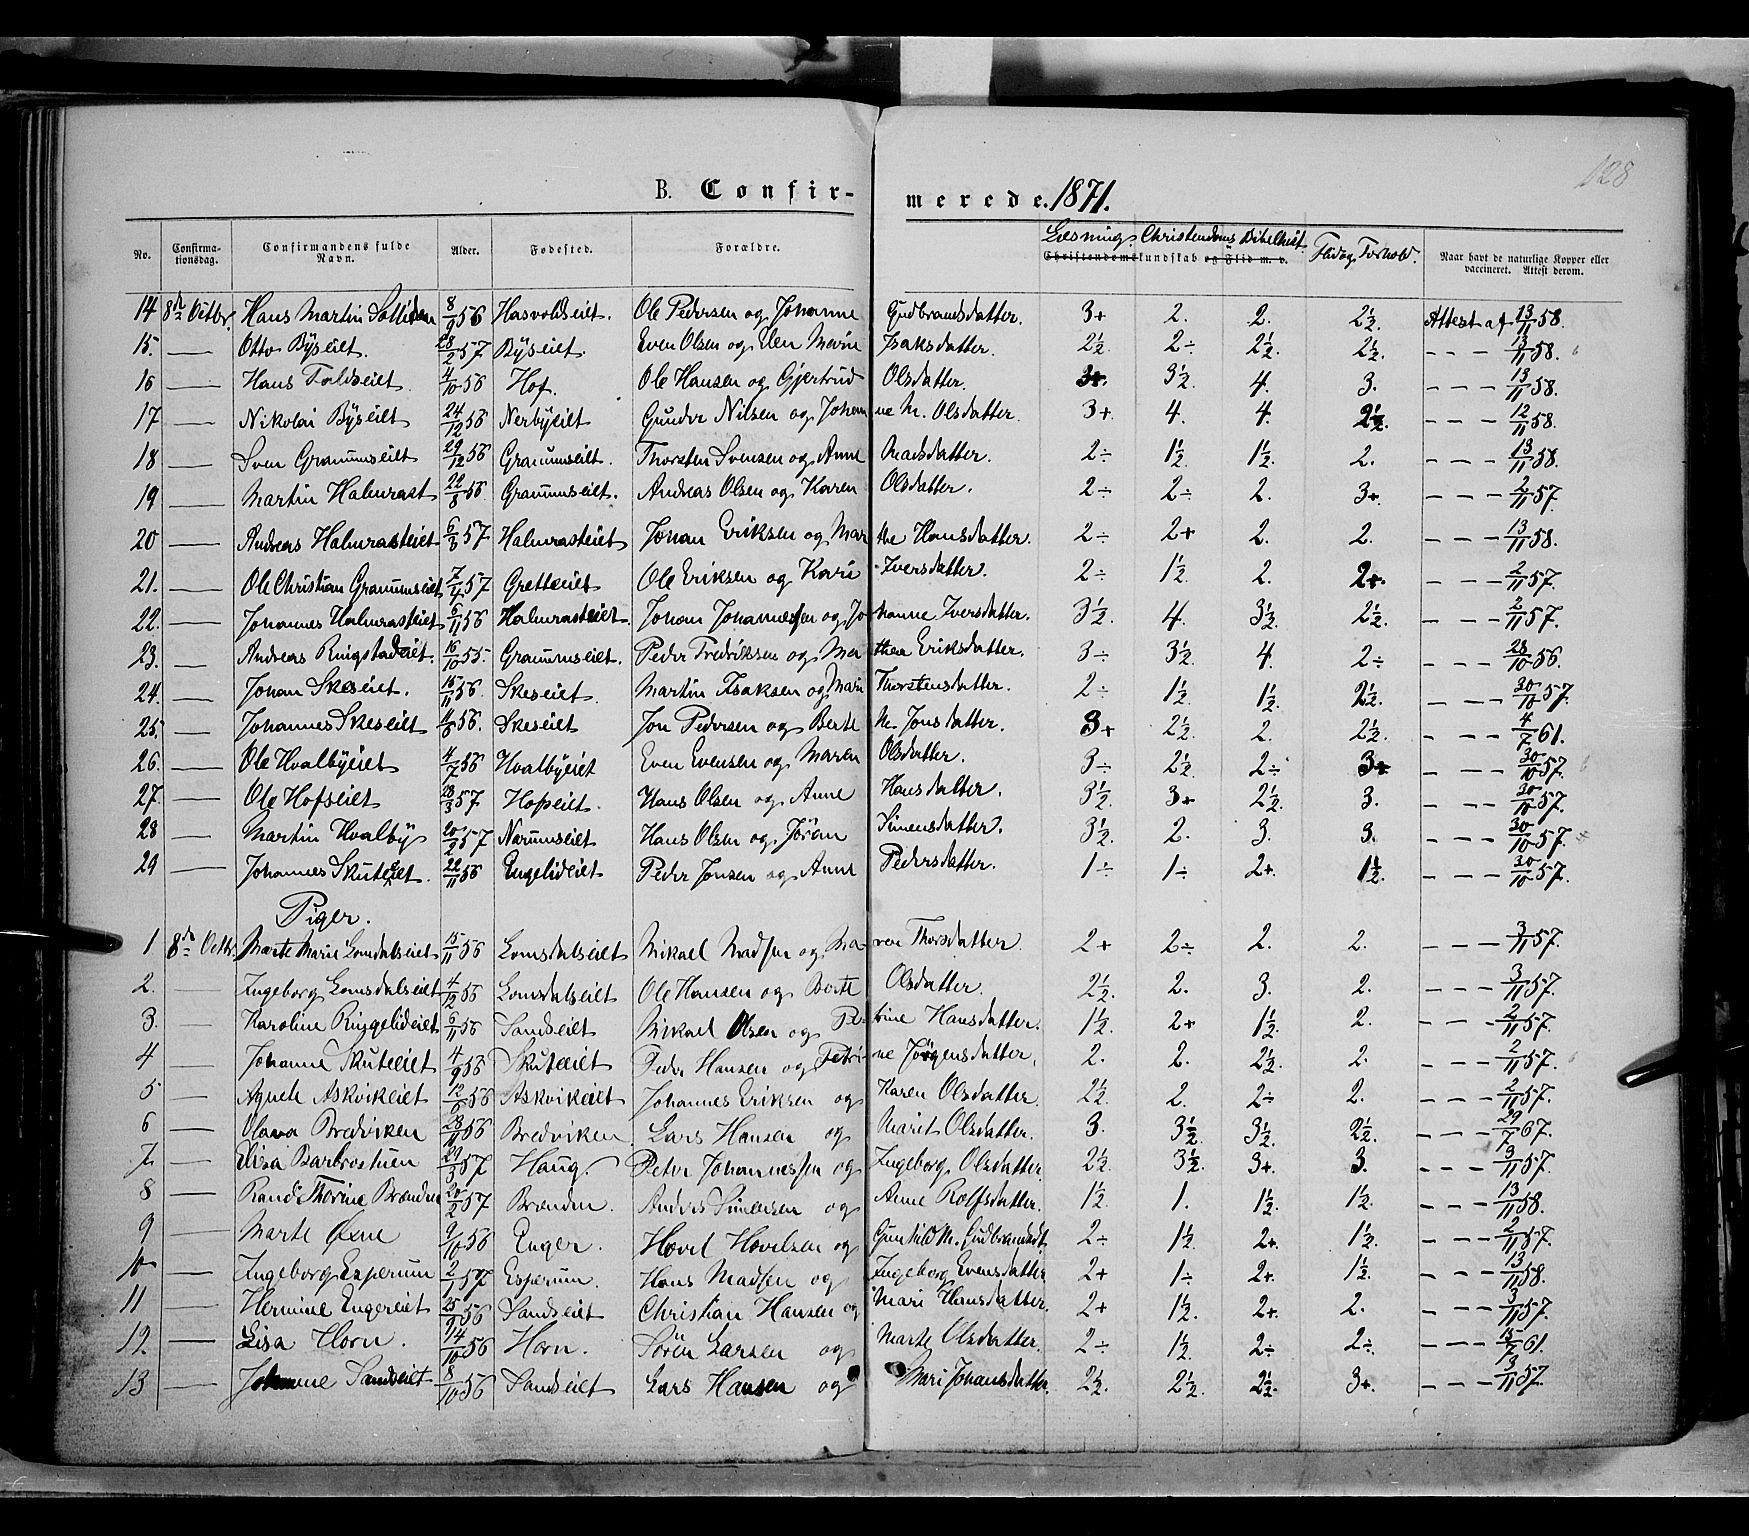 128
B. Confir- merede. 1871.
No. Confirma-tionsdag. Confirmandens fulde Navn. Alder. Fødested. Forældre. Læsning. Christendoms Bibelhist. Flid og Forhold. Christendomskundskab og Flid m. v. Naar havt de naturlige Kopper eller vaccineret. Attest derom.
14 8de Octbr. Hans Martin 8/9 56 Hasvoldseiet. Ole Pedersen og Johanne Gudbrandsdatter. 3+ 2. 2. 2½. Attest af 13/11 58.
15. — Otto Byseiet. 28/2 57 Byseiet. Even Olsen og Elen Marie Isaksdatter. 2½ 2÷ 2½. 2½. - - - 13/11 58.
16 — Hans Foldseiet. 4/10 56 Hof. Ole Hansen og Gjertrud Olsdatter. 3+. 3½ 4. 3. - - - 13/11 58.
17 — Nikolai Byseiet 24/12 56 Nerbyeiet Gunder Nilsen og Johanne M. Olsdatter. 3+. 4. 4. 2½. - - - 12/11 58.
18 — Sven Granumseiet 29/12 56 Granumseiet. Thorsten Svensen og Anne Madsdatter. 2÷ 1½. 1½. 2. - - - 13/11 58.
19 — Martin Halmrast 22/8 56 Granumseiet. Andreas Olsen og Karen Olsdatter. 2÷ 2÷ 2. 3+. - - - 2/11 57.
20 — Andreas Halmrasteiet 6/3 57 Halmrasteiet Johan Eriksen og Marthe Hansdatter. 2÷ 2+ 2. 2. - - - 13/11 58.
21. — Ole Christian Granumseiet 7/4 57 Gretteeiet Ole Eriksen og Kari Iversdatter. 2÷ 1½. 2. 2+. - - - 2/11 57.
22. — Johannes Halmrasteiet 6/11 56 Halmrasteiet. Johan Johannessen og Johanne Iversdatter. 3½. 4. 3½. 2½. - - - 2/11 57.
23. — Andreas Ringstadeiet. 16/10 55. Granumseiet. Peder Fredriksen og Mathea Eriksdatter. 3÷ 3½. 4. 2÷ - - - 28/10 56.
24. — Johan Skeseiet. 15/11 56. Skeseiet. Martin Isaksen og Mari Thorstensdatter. 2÷ 1½. 1½. 2½. - - - 30/10 57.
25. — Johannes Skeseiet 56. Skeseiet Jon Pedersen og Berte M. Jonsdatter. 3+ 2½. 2. 2½. - - - 4/7 61.
26. — Ole Hvalbyeiet 4/7 56 Hvalbyeiet Even Evensen og Maren Olsdatter. 3÷ 2½. 2÷ 3+ - - - 30/10 57.
27. — Ole Hofseiet 28/3 57 Hofseiet. Hans Olsen og Anne Hansdatter. 3½. 3+ 2½. 3. - - - 30/10 57.
28 — Martin Hvalby 20/2 57 Narumseiet Hans Olsen og Jöran Simensdatter. 3½. 2. 3. 3. - - - 30/10 57.
29 — Johannes Skuteeiet. 22/11 56 Engelideiet Peder Jonsen og Anne Pedersdatter. 1÷ 1÷ 2+. 1½. - - - 30/10 57.
Piger.
1 8de Octbr. Marte Marie Lomsdalseiet 15/11 56 Lomsdalseiet Mikael Madsen og Maren Thorsdatter. 2+ 2÷ 2. 2. - - - 3/11 57.
2. — Ingeborg Lomsdalseiet 4/12 56 Lomsdalseiet Ole Hansen og Berte Olsdatter. 2½. 2. 3. 2. - - - 3/11 57.
3. — Karoline Ringelideiet 6/11 56 Sandseiet Mikael Olsen og Hansdatter. 1½. 2+ 1½. 2. - - - 2/11 57.
4 — Johanne Skuteeiet 4/9 56 Skuteeiet Peder Hansen og Petrine Jørgensdatter. 2. 2. 2½. 2. - - - 2/11 57.
5 — Agnete Askvikeiet 56 Askvikeiet Johannes Eriksen og Karen Olsdatter. 2½. 2. 2÷ 2. - - - 2/11 57.
6 — Olava Bredviken 28/11 56 Bredviken. Lars Hansen og Marit Olsdatter. 3. 3½. 3½. 2½. - - - 29/7 67.
7. — Elisa Barbrostuen 29/3 57 Haug. Peter Johannessen og Ingeborg Olsdatter. 2½. 3½. 3+. 3. - - - 57.
8 — Randi Thorine Brænden 20/2 57 Brænden. Anders Simensen og Anne Rolfsdatter. 1½. 1. 1½. 1½. - - - 13/11 58.
9 — Marte Øxne 9/10 56 Enger. Hovel Hovelsen og Gunhild M. Gudbrandsdt. 2÷ 1½. 2+. 1½. - - - 2/11 57.
10 — Ingeborg Esperum 2/1 57 Esperum. Hans Madsen og Ingeborg Evensdatter. 2+ 1÷ 2+. 1½. - - - 13/11 58.
11 — Hermine Engereiet 25/9 56 Sandseiet Christian Hansen og Mari Hansdatter. 2+ 1½. 2+. 2. - - - 3/11 57.
12. — Lisa Horn. 14/10 56 Horn. Sören Larsen og Marte Olsdatter. 2÷ 1½. 2÷ 2÷. - - - 15/7 61.
13 — Johanne Sandseiet 8/10 56 Sandseiet Lars Hansen og Mari Johansdatter. 2½. 2½. 2½. 3+. - - - 13/11 57.